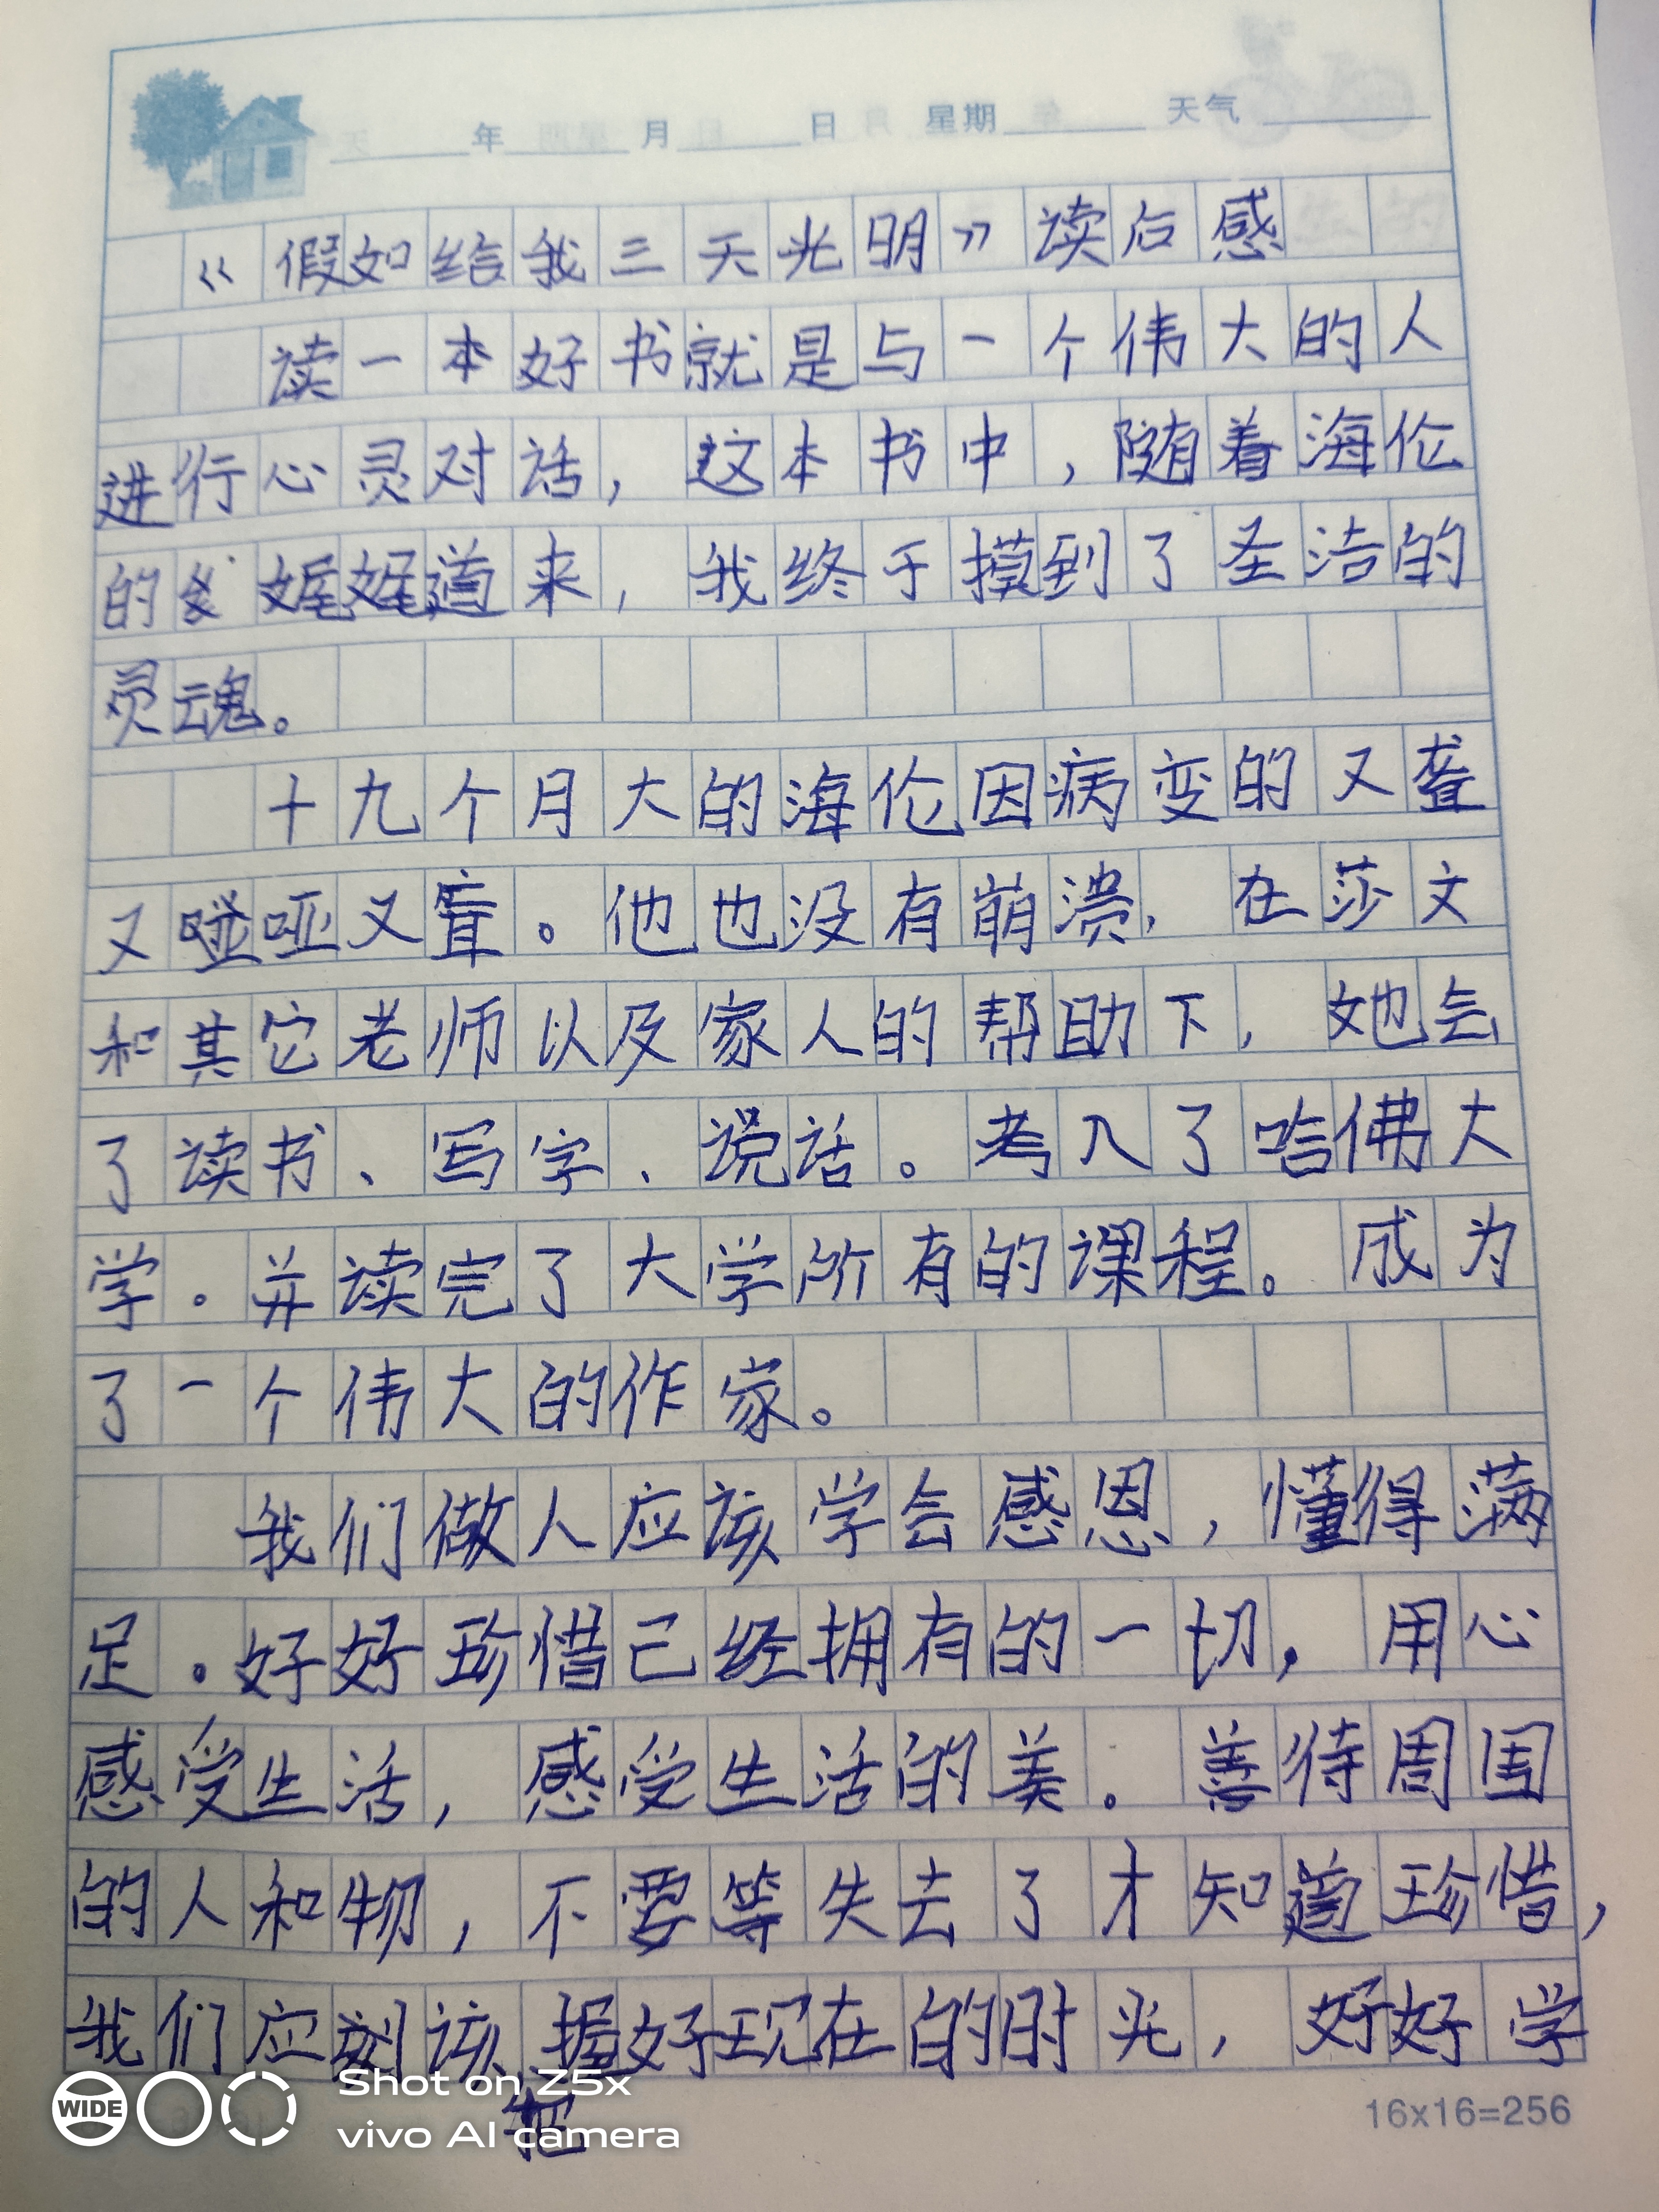 年 月 日 星期 天气
《假如给我三天光明》读后感
读一本好书就是与一个伟大的人
进行心灵对话，这本书中，随着海伦
的 娓娓道来，我终于摸到了圣洁的
灵魂。
十九个月大的海伦因病变的又聋
又 哑又盲。他也没有崩溃，在莎文
和其它老师以及家人的帮助下，她会
了读书、写字、说话。考入了哈佛大
学。并读完了大学所有的课程。成为
了一个伟大的作家。
我们做人应该学会感恩，懂得满
足。好好珍惜已经拥有的一切，用心
感受生活，感受生活的美。善待周围
的人和物，不要等失去了才知道珍惜，
我们应该把握好现在的时光，好好学
16x16=256
WIDE
Shot on Z5x
vivo AI camera